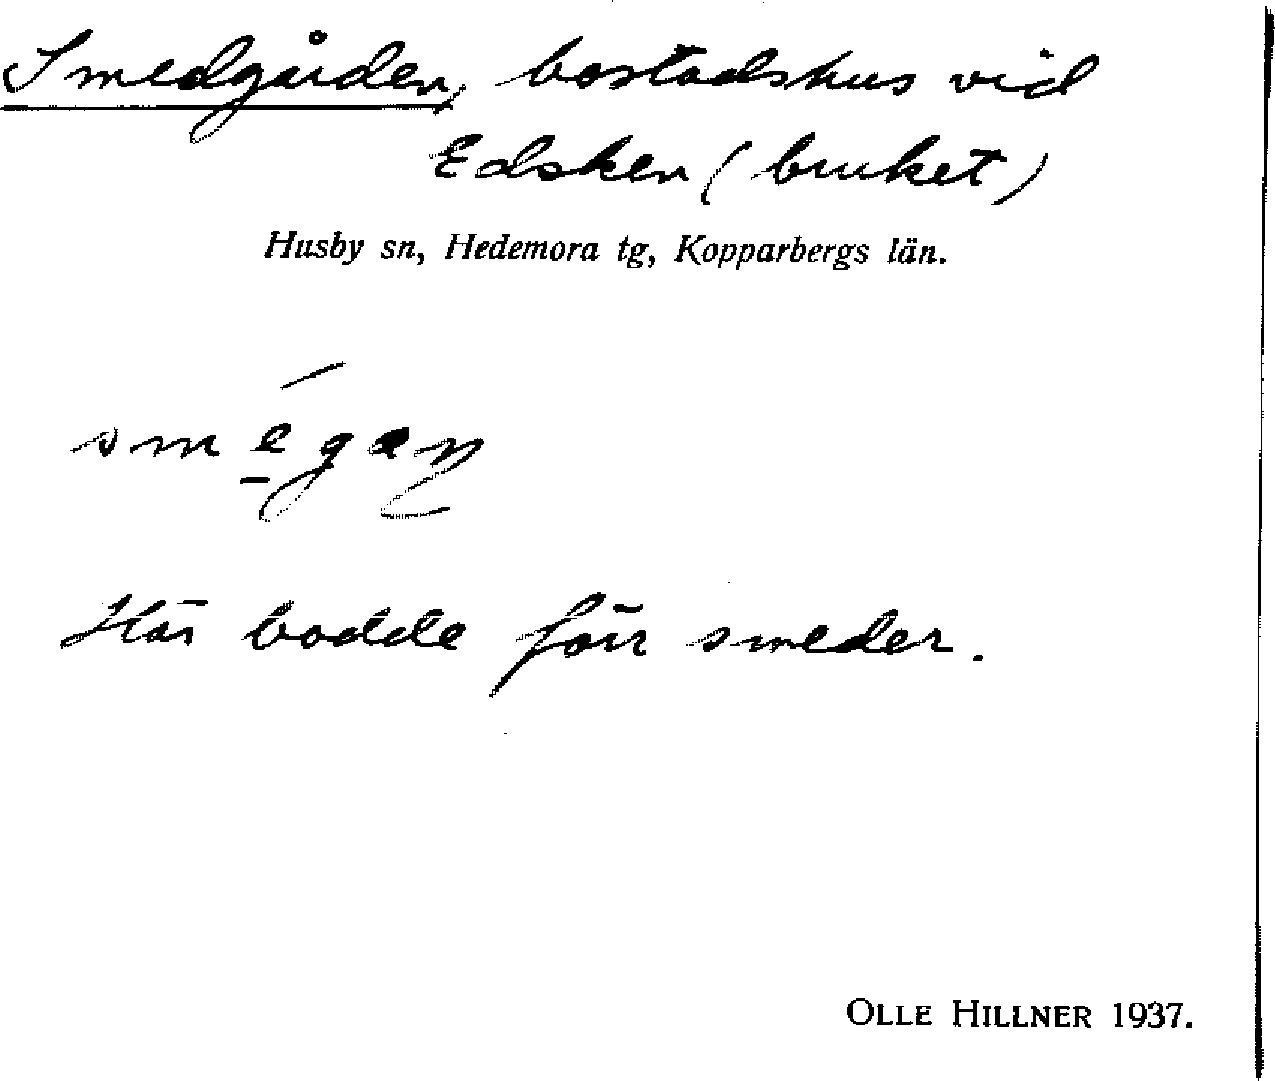 Smedgården, bostadshus vid
Edsken (bruket)
Husby sn, Hedemora tg, Kopparbergs län.
smé̱gaṉ
Här bodde förr smeder.
OLLE HILLNER 1937.